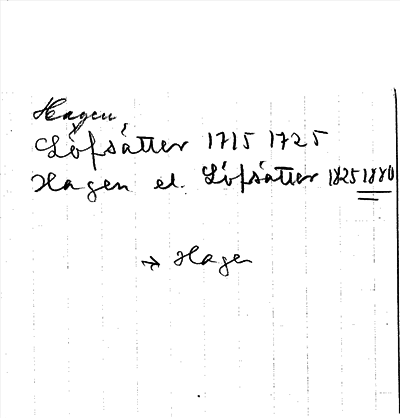 Hagen,
Löfsätter 1715 1725
Hagen el. Löfsätter 1825 1880
→ Hagen